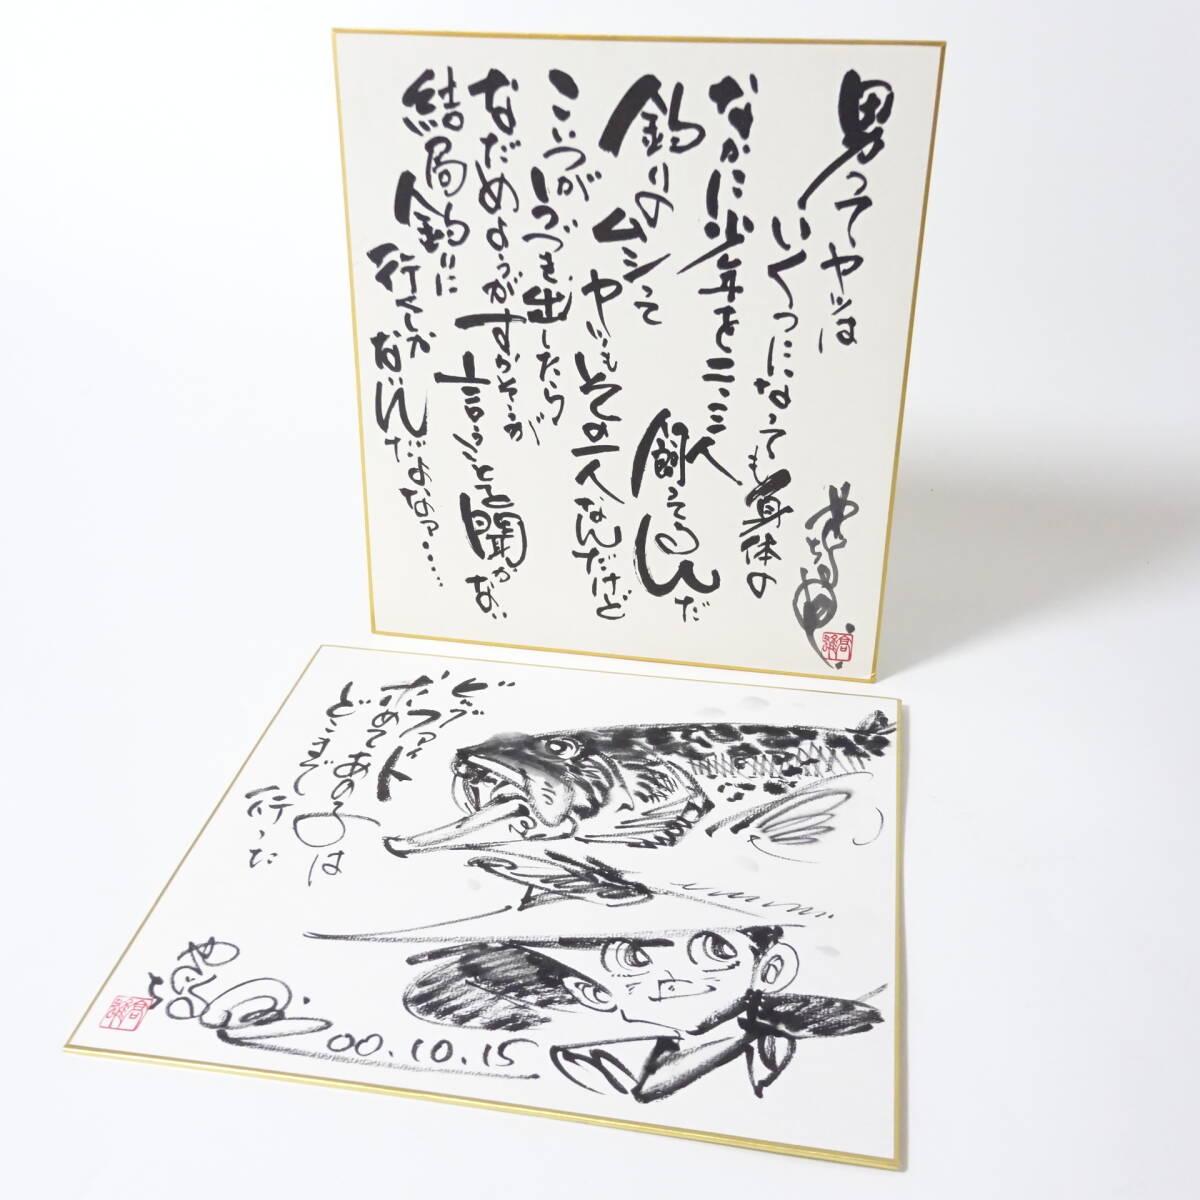 男ってヤツは
いくつになっても身体の
なかに少年を二、三人
飼ってるんだ
釣りのムシって
ヤツもその一人なんだけど
こいつがうづき出したら
なだめようがすかそうが
言うことを聞かない
結局釣りに
行くしか
ないんだよなァ・・・・・
ビッグ
ファイト
求めてあの子は
どこまで
行った
00.10.15